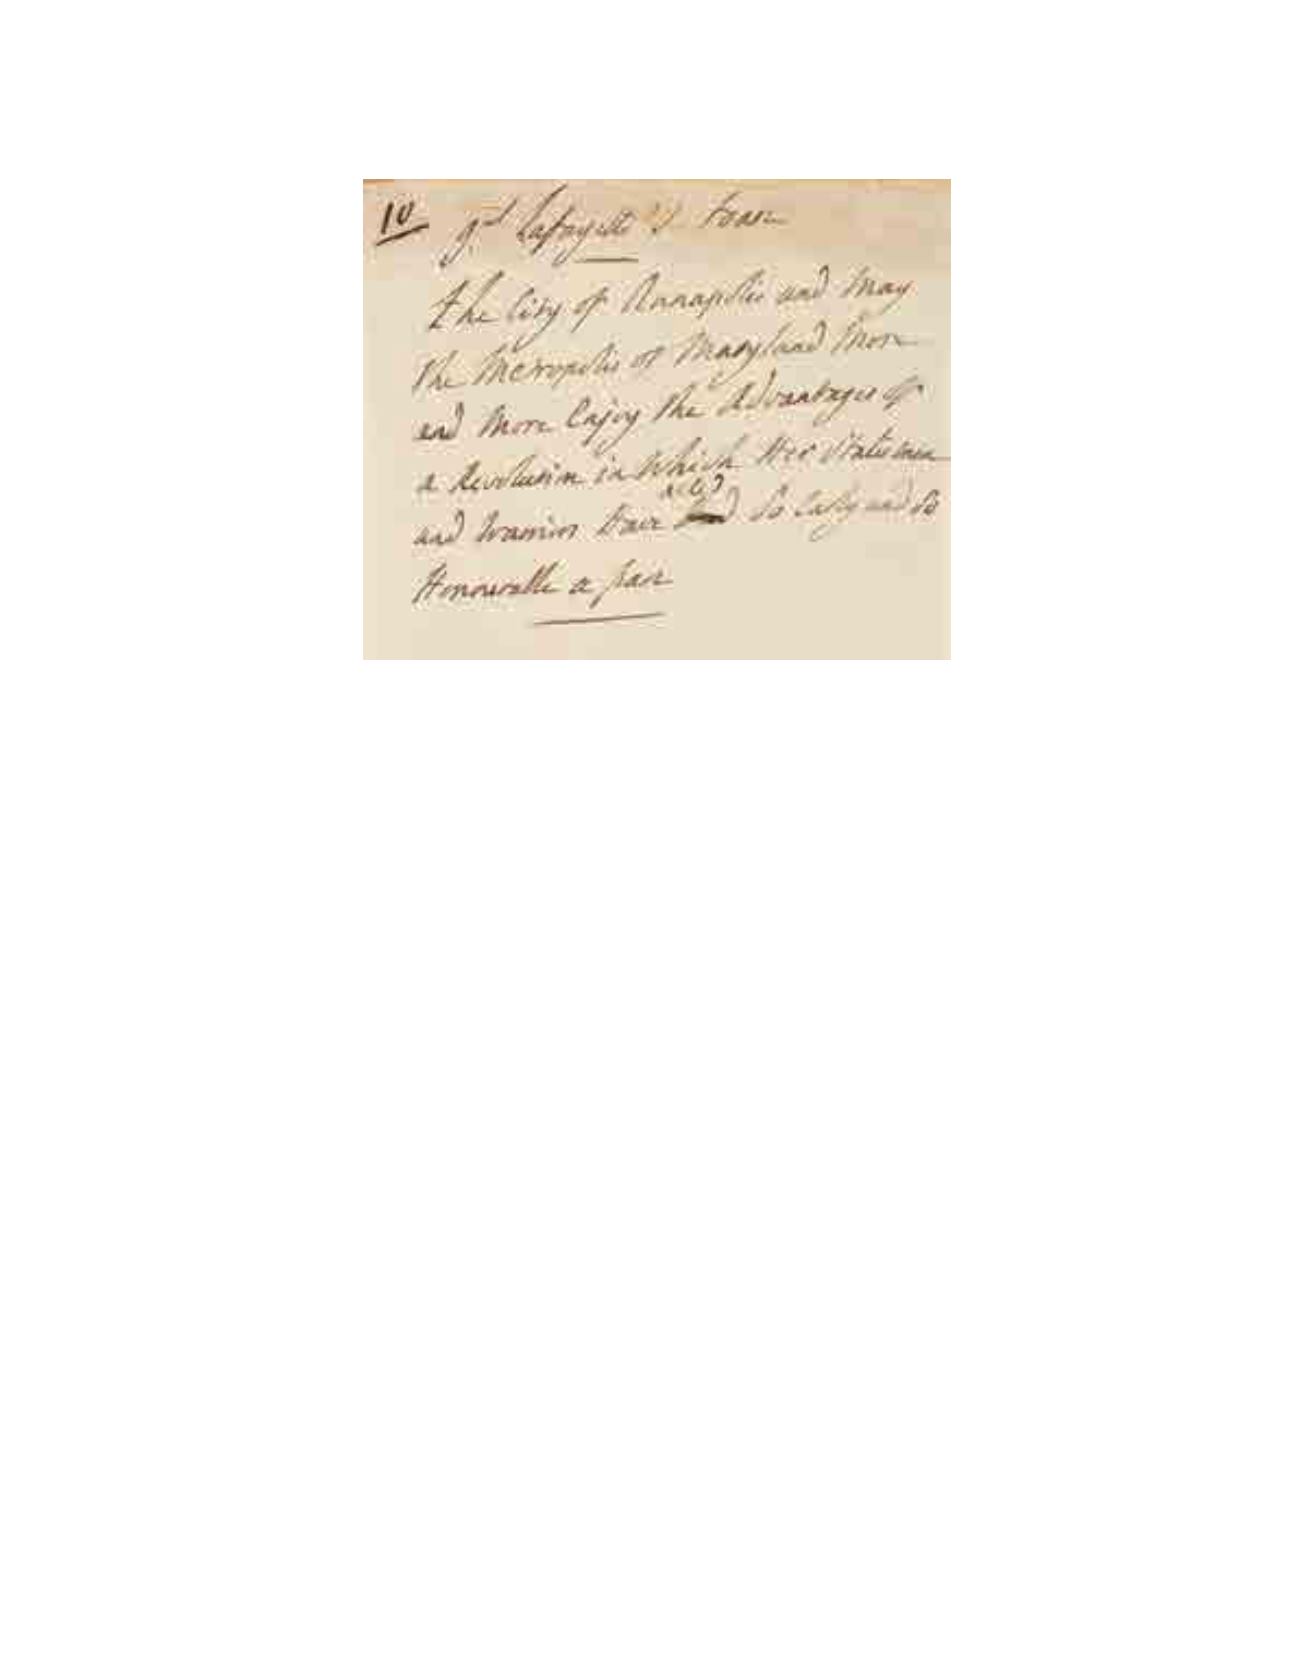 10
gnl Lafayette's Toast
The City of Annapolis and May
the Metropolis of Maryland More
and More Enjoy the Advantages of
a Revolution in Which Her Statesmen
acted
and Warriors Have So Early and So
Honourable a part